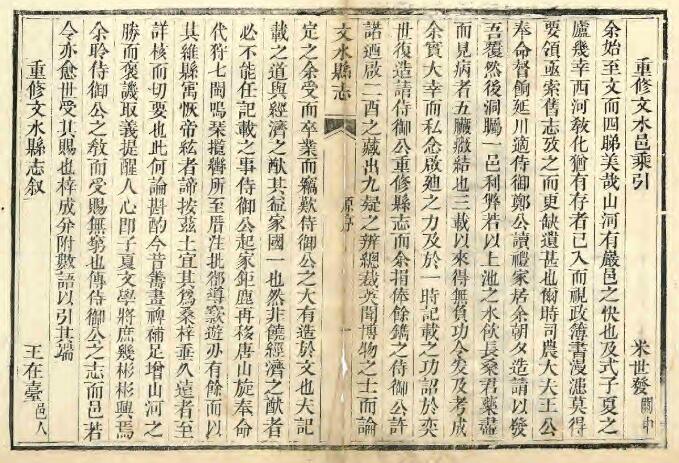 重修文水邑乘引
米世發關中
余始至文而四睇美哉山河有嚴邑之快也及式子夏之
廬幾幸西河敎化猶有存者已入而視政簿書漫漶莫得
要領亟索舊志攷之而更缺遺甚也傋時司農大夫王公
奉命督餉延川適侍御鄭公讀禮家居余朝夕造請以發
吾覆然後洞矚一邑利弊若以上池之水飲長桑君藥盡
而見病者五臟癥結也三載以來得無負功令及考成
余實大幸而私念啟廸之力及於一時記載之功詔於奕
世復造請侍御公重修縣志而余捐俸餘鐫之侍御公許
諾廼啟二酉之藏出九疑之辨總裁英聞博物之士而論
文水縣志
原序
一
定之余受而卒業而繙歎侍御公之大有造於文也夫記
載之道與經濟之猷其益家國一也然非饒經濟之猷者
必不能任記載之事侍御公起家鉅鹿再移唐山旋奉命
代狩七閩鳴琹攬轡所至厝注批郤導窾遊刃有餘而以
其維縣寓恢帝紘者諦按茲土宜其爲桑梓垂久遠者至
詳核而切要也此何論斟酌今昔善畫裨補足增山河之
勝而褒譏取義提醒人心卽子夏文學將庶幾彬彬興焉
余聆侍御公之敎而受賜無窮也傳侍御公之志而邑若
令亦愈世受其賜也梓成分附數語以引其端
重修文水縣志叙
王在臺邑人